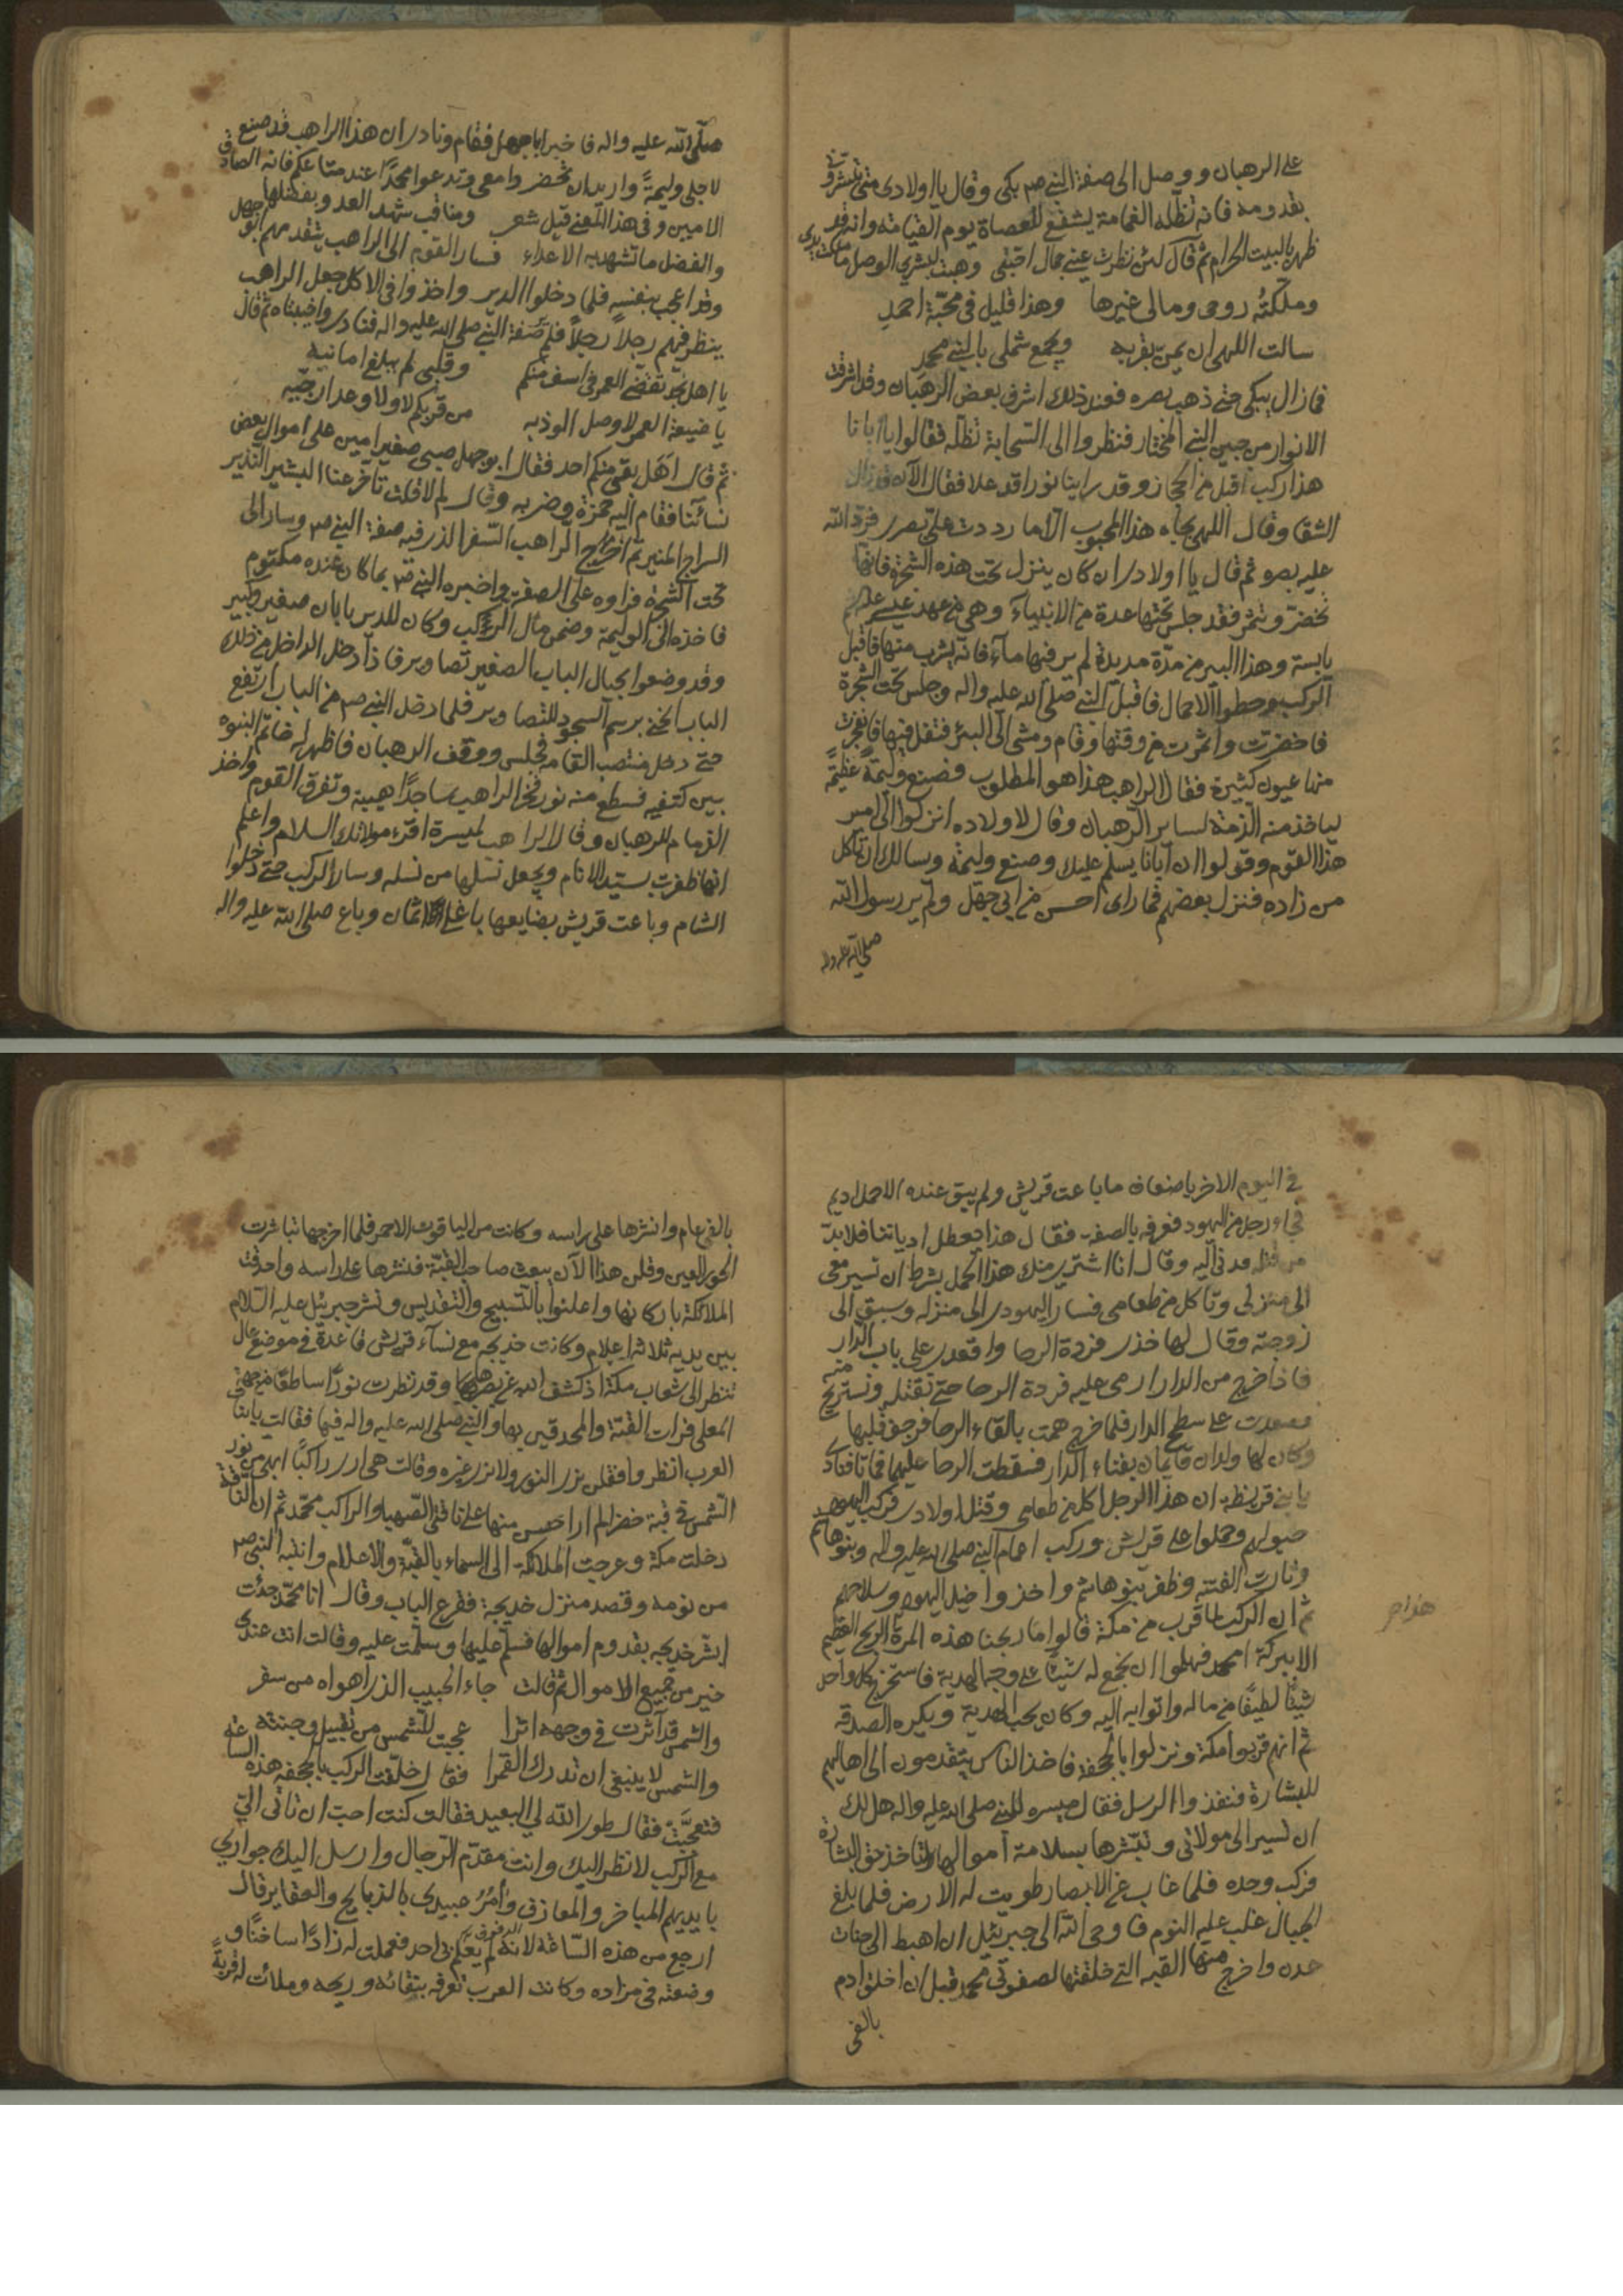 على الرهبان ووصل الى صفة النبي صم بكى وقال يا اولادى متى تشرق فى
بقدومه فانه تظله الغمامة يشفع للعصاة يوم القيامة وانه قد
ظهر بالبيت الحرام ثم قال لئن نظرت عينى جمال احبتى وهبت لبشرى الوصل ما ملكت يدى
وملكته روحى ومالى غيرها وهذا قليل فى محبة احمد
سالت اللهى ان يمن بقربه ويجمع شملى بالنبى محمد
فما زال يبكى حتى ذهب بصره فعند ذلك اشرف بعض الرهبان وقد اشرقت
الانوار من جبين النبى المختار فنظروا الى السحابة تظله فقالوا يا ابانا
هذا ركب اقبل من الحجاز وقد راينا نورا قد علا فقال الآن قد زال
الشقا وقال اللهى بجاه هذا المحبوب الا ما رددت على بصرى فرد الله
عليه بصره ثم قال يا اولادى ان كان ينزل تحت هذه الشجرة فانها
تخضر وتثمر فقد جلس تحتها عدة من الانبياء وهى من عهد عيسى علم
يابسة وهذا البير من مدة مديدة لم ير فيها ماء فانه يشرب منها فاقبل
الركب وحطوا الاحمال فاقبل النبى صلى الله عليه واله وجلس تحت الشجرة
فاخضرت واثمرت من وقتها وقام ومشى الى البئر فتفل فيها فانفجرت
منها عيون كثيرة فقال الراهب هذا هو المطلوب فصنع وليمة عظيمة
لياخذ منه الذمة لساير الرهبان وقال لاولاده انزلوا الى امير
هذا القوم وقولوا ان ابانا يسلم عليك وصنع وليمة وسالك ان تاكل
من زاده فنزل بعضهم فما راى احسن من ابى جهل ولم ير رسول الله
صلى الله عليه واله
صلى الله عليه واله فاخبر ابا جهل فقام ونادى ان هذا الراهب قد صنع
لاجلى وليمة واريد ان تحضروا معى وتدعوا محمدا عند متاعكم فانه الصادق
الامين وفى هذا المعنى قيل شعر ومناقب شهد العدو بفضلها
والفضل ما تشهد به الاعداء فسار القوم الى الراهب يتقدمهم ابو جهل
وقد اعجب بنفسه فلما دخلوا الدير واخذوا فى الاكل جعل الراهب
ينظر فيهم رجلا رجلا فلم صفة النبى صلى الله عليه واله فنادى واخيبتاه ثم قال
يا اهل نجد تقضى العمر فى اسف منكم وقلبى لم يبلغ امانيه
يا ضيعة العمر لا وصل الوذ به من قربكم لا ولا وعد ارجيه
ثم قال اهل بقى منكم احد فقال ابو جهل صبى صغير امين على اموال بعض
نسائنا فقام اليه حمزة وضربه وقال لم لا قلت تاخر عنا البشير النذير
السراج المنير ثم اخرج الراهب السفر الذى فيه صفة النبى صم وسار الى
تحت الشجرة فراوه على الصفة واخبره النبى صم بما كان عنده مكتوم
فاخذه الى الوليمة وضمن مال الركب وكان للدير بابان صغير وكبير
وقد وضعوا بحيال الباب الصغير تصاوير فاذا دخل الداخل من ذلك
الباب انحنى برسم السجود للتصاوير فلما دخل النبى صم من الباب ارتفع
حتى دخل منتصب القامة فجلس ووقف الرهبان فاظهر له خاتم النبوه
بين كتفيه فسطع منه نور فخر الراهب ساجدا هيبة وتفرق القوم واخذ
الزمام للرهبان وقال الراهب لميسرة اقرء مولاتك السلام واعلم
انها ظفرت بسيد الانام ويجعل نسلها من نسله وسار الركب حتى دخلوا
الشام وباعت قريش بضايعها باغلى الاثمان وباع صلى الله عليه واله
فى اليوم الاخر باضعاف ما باعت قريش ولم يبق عنده الا حمل اديم
فجاء رجل من اليهود فعرفه بالصفة فقال هذا يعطل ادياننا فلا بد
من قتله فدنى اليه وقال انا اشترى منك هذا الحمل بشرط ان تسير معى
الى منزلى وتاكل من طعامى فسار اليهودى الى منزله وسبق الى
زوجته وقال لها خذى فردة الرحا واقعدى على باب الدار
فاذا خرج من الدار ارمى عليه فردة الرحا حتى نقتله ونستريح منه
فصعدت على سطح الدار فلما خرج همت بالقاء الرحا فرجف قلبها
وكان لها ولدان قايمان بفناء الدار فسقطت الرحا عليهما فماتا فنادى
يا بنى قريظة ان هذا الرجل اكل من طعامى وقتل اولادى فركب اليهود
خيولهم وحملوا على قريش وركب اعمام النبى صلى الله عليه واله وبنو هاشم
وثارت الفتنة وظفر بنو هاشم واخذوا خيل اليهود وسلاحهم
ثم ان الركب لما قرب من مكة قالوا ما ربحنا هذه المرة بالربح العظيم
الا ببركة محمد فهلموا ان نجمع له شيئا على وجه الهدية فاستخرج كل واحد
شيئا لطيفا من ماله واتوا به اليه وكان يحب الهدية ويكره الصدقه
ثم انهم قربوا مكة ونزلوا بالجحفة فاخذ الناس يتقدمون الى اهاليهم
للبشارة فنفذوا الرسل فقال ميسره للنبى صلى الله عليه واله هل لك
ان تسير الى مولاتى وتبشرها بسلامة اموالها ولتاخذ حق البشارة
فركب وحده فلما غاب عن الابصار طويت له الارض فلما بلغ
الجبال غلب عليه النوم فاوحى الله الى جبرئيل ان اهبط الى جنات
عدن واخرج منها القبه التى خلقتها لصفوتى محمد قبل ان اخلق ادم
بالفى
بالفى عام وانشرها على راسه وكانت من الياقوت الاحمر فلما اخرجها تباشرت
الحور العين وقلن هذا الآن يبعث صاحب القبة فنشرها على راسه واحدقت
الملائكة باركانها واعلنوا بالتسبيح والتقديس ونشر جبرئيل عليه السلام
بين يديه ثلاثة اعلام وكانت خديجه مع نساء قريش قاعدة فى موضع عال
تنظر الى شعاب مكة اذ كشف الله عن بصرها وقد نظرت نورا ساطعا من جهة
المعلى فرات القبة والمحدقين بها والنبى صلى الله عليه واله فيها فقالت يا بنات
العرب انظروا فقلن نرى النور ولا نرى غيره وقالت هى ارى راكبا ابهى من نور
الشمس فى قبة خضرا لم ار احسن منها على ناقتى الصهبا والراكب محمد ثم ان الناقة
دخلت مكة وعرجت الملائكة الى السماء بالقبة والاعلام وانتبه النبى صم
من نومه وقصد منزل خديجة فقرع الباب وقال انا محمد جئت
ابشر خديجه بقدوم اموالها فسلم عليها وسلمت عليه وقالت انت عندى
خير من جميع الاموال ثم قالت جاء الحبيب الذى اهواه من سفر
والشمس قد اثرت فى وجهه اثرا عجبت للشمس من تقبيل وجنته
والشمس لا ينبغى ان تدرك القمرا فقال خلفت الركب بالجحفه هذه الساعة
فتعجبت فقال طوى الله لى البعيد فقالت كنت احب ان تاتى الى
مع الركب لانظر اليك وانت مقدم الرجال وارسل اليك جوارى
بايديهم المباخر والمعازف وامر عبيدى بالذبايح والعقاير قال
ارجع من هذه الساعة لانه لم يعلم بى احد فعملت له زادا ساخنا و
وضعته فى مزاده وكانت العرب تعرفه بنقائه وريحه وملأت له قربة